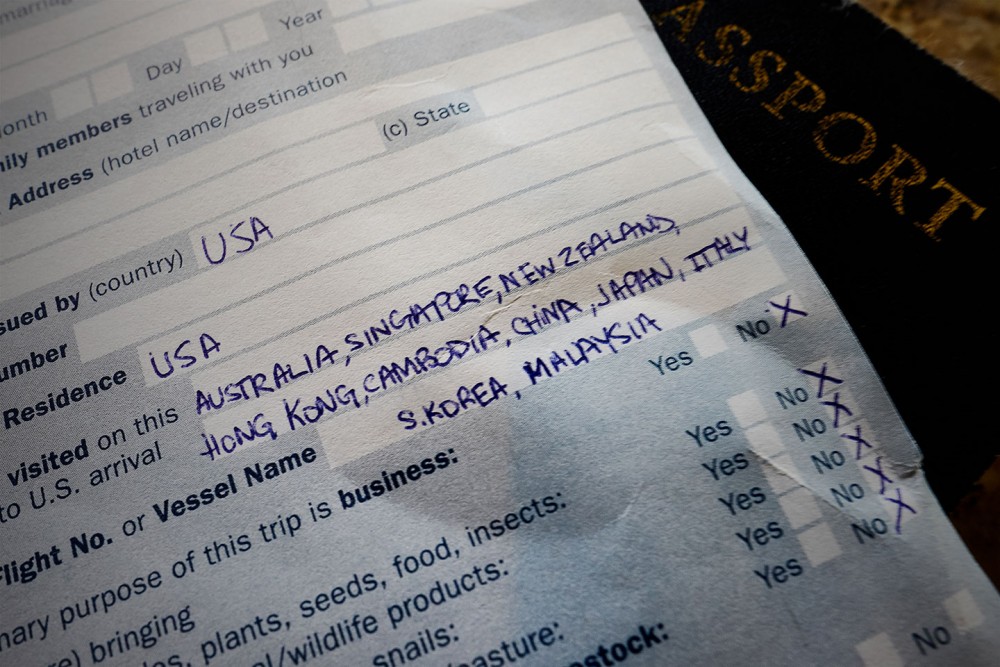 Year
Day
traveling with you
members
Address (hotel name/destination
(c) State
by (country) USA
Residence USA
visited on this AUSTRALIA, SINGAPORE, NEW ZEALAND,
to U.S. arrival HONG KONG, CAMBODIA, CHINA, JAPAN, ITALY
S. KOREA, MALAYSIA
No. or Vessel Name
purpose of this trip is business: Yes No X
bringing
plants, seeds, food, insects: Yes No X
products: Yes No X
snails: Yes No X
Yes No X
Yes No X
No
PASSPORT